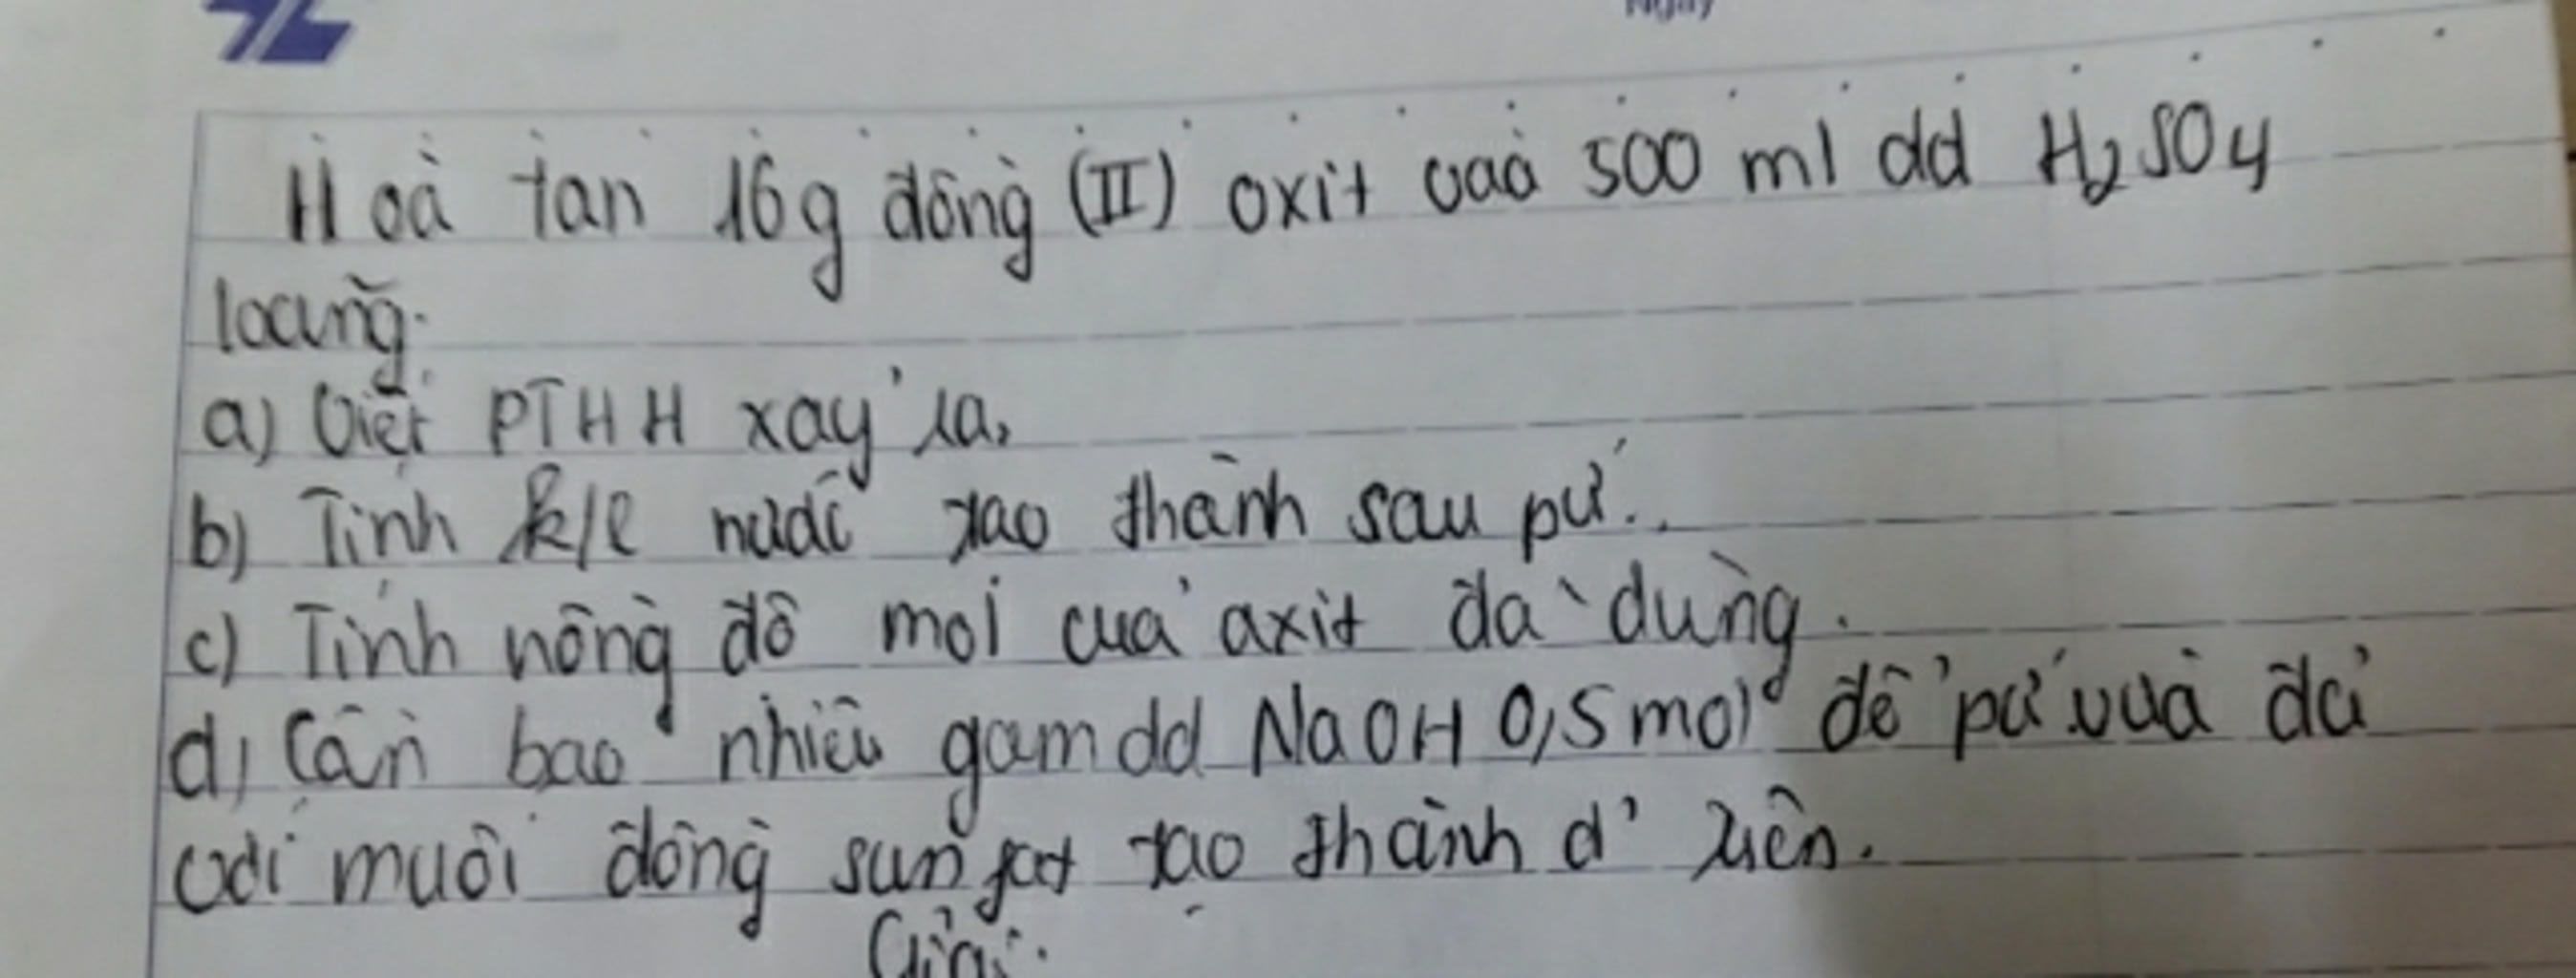 Ngày
Hoà tan 16g đồng (II) oxit vào 500 ml dd H₂SO₄
loãng.
a) Viết PTHH xảy ra,
b) Tính k/l nước tạo thành sau pứ.
c) Tính nồng độ mol của axit đã dùng.
d, Cần bao nhiêu gam dd NaOH 0,5 mol để pứ vừa đủ
với muối đồng sunfat tạo thành ở trên.
Giải: